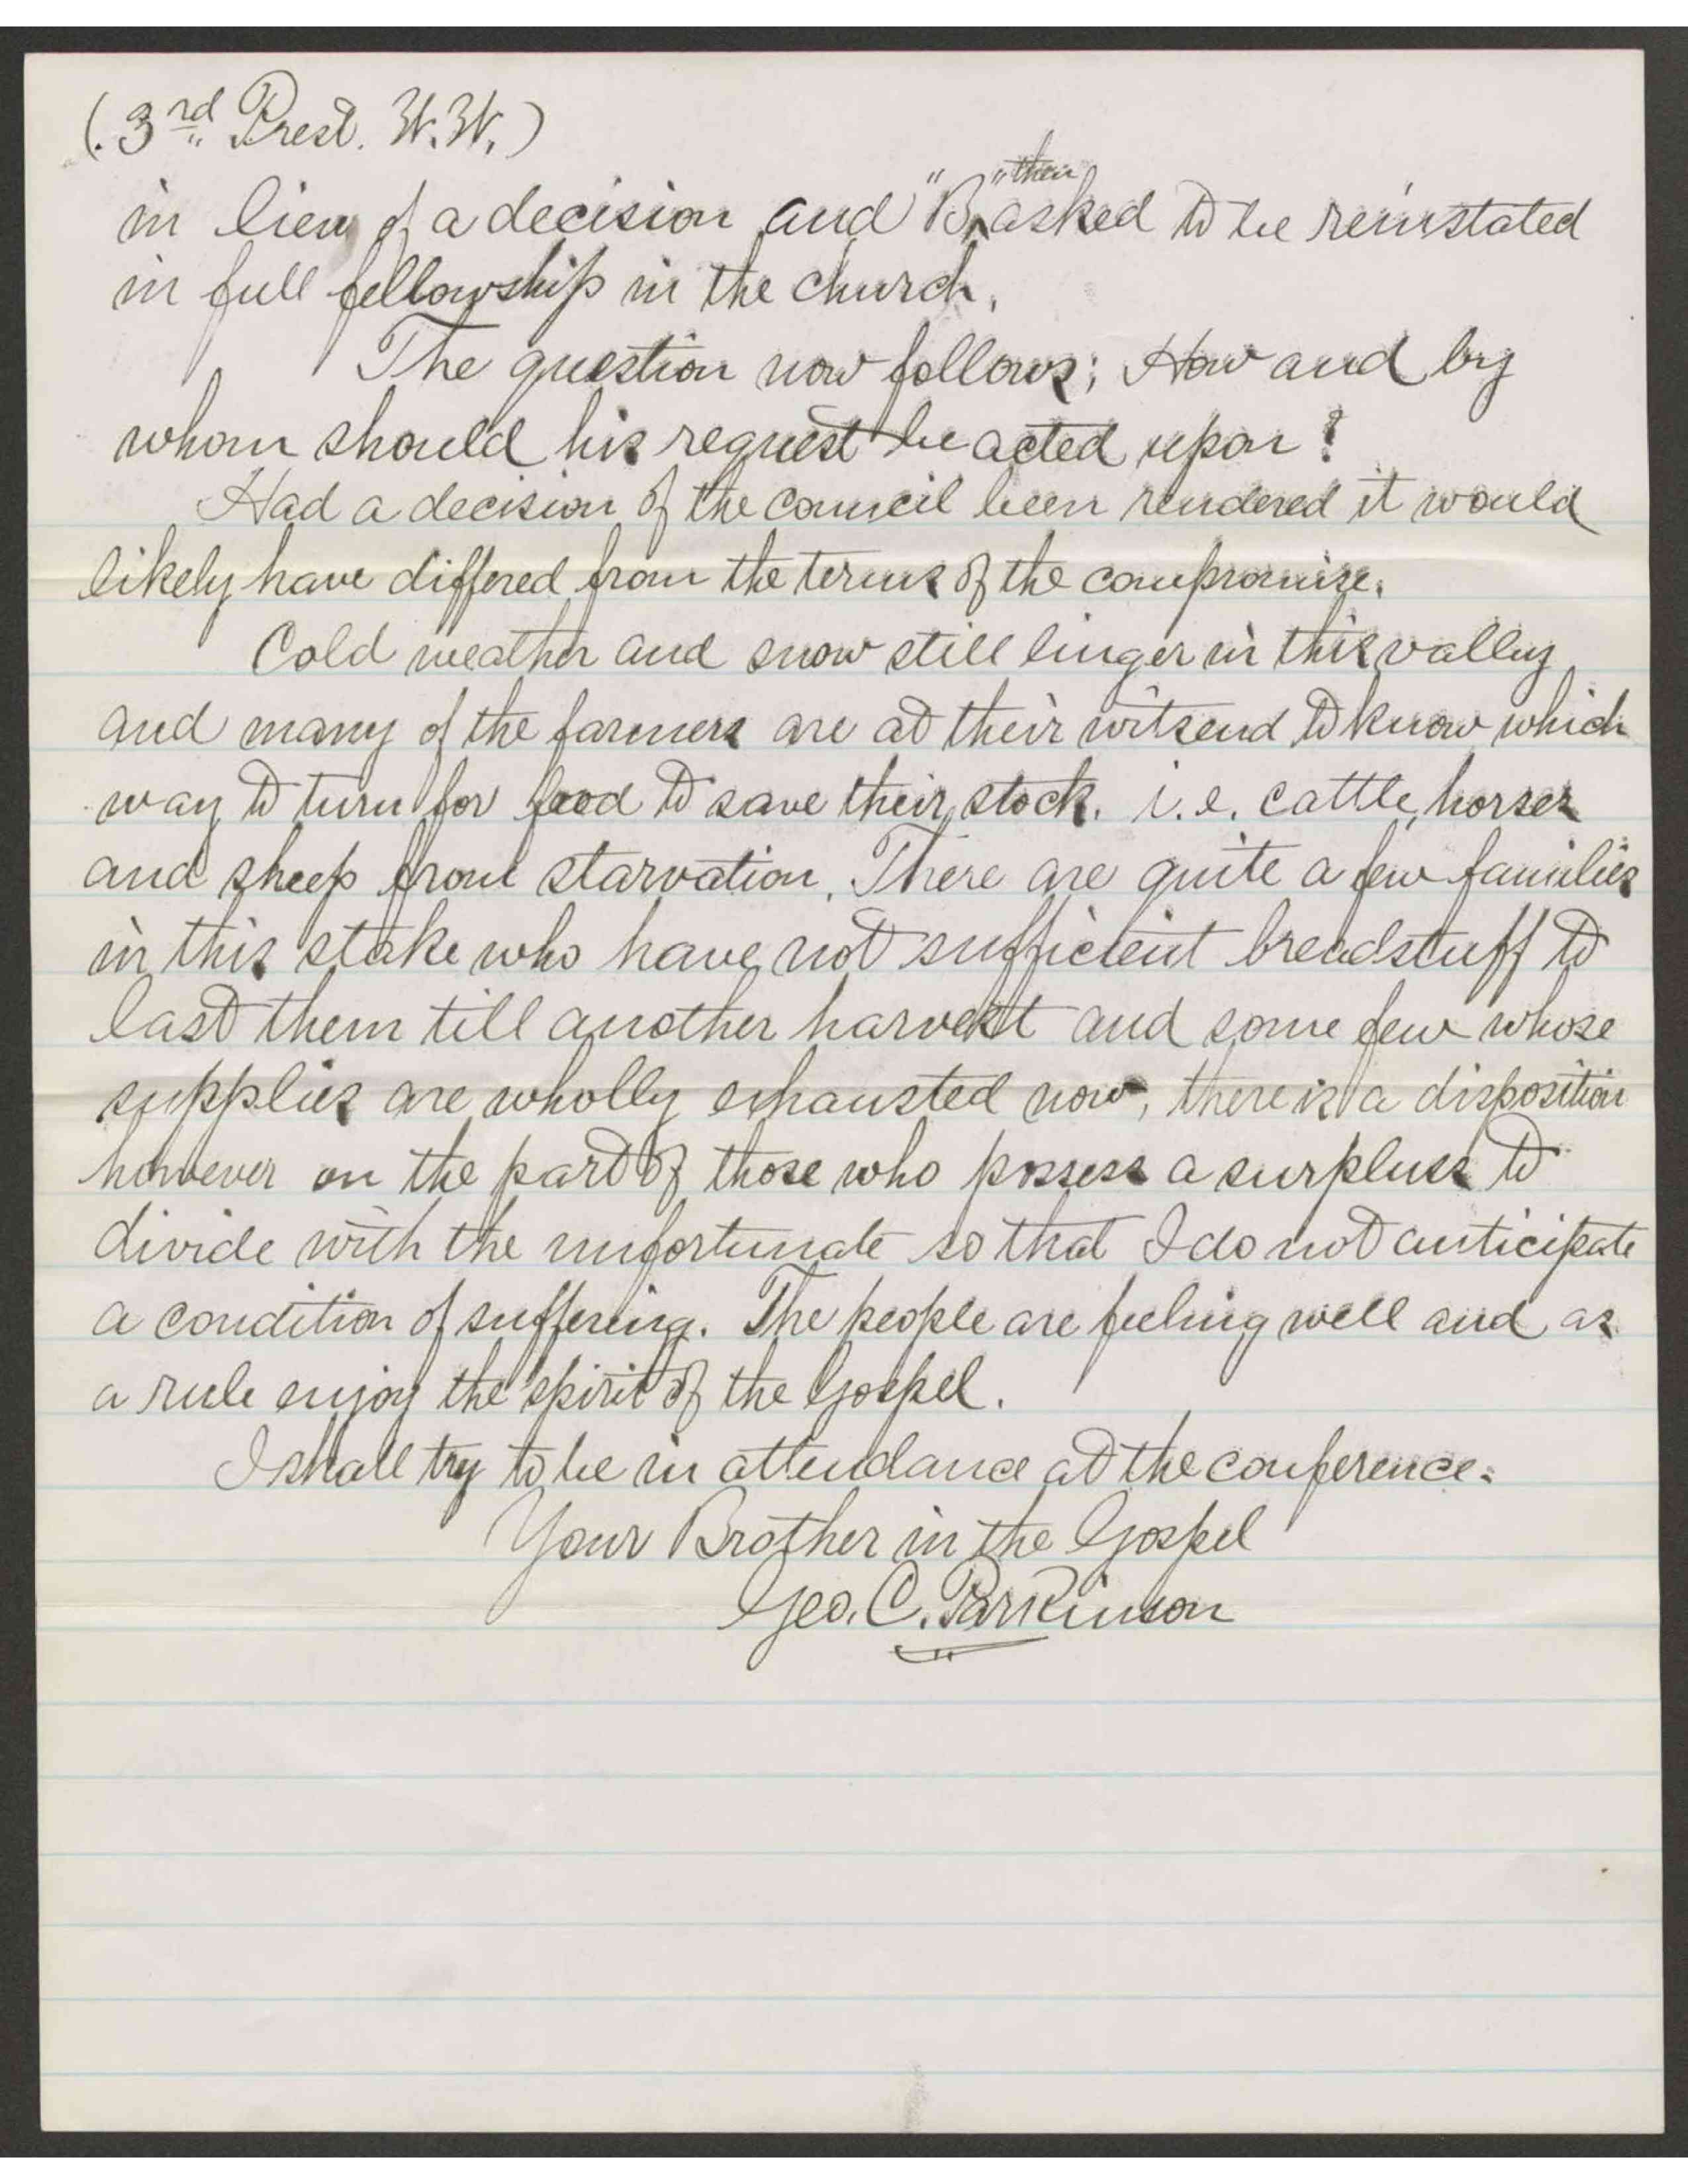 (.3rd Prest. W.W.)
in lieu of a decision and "B" then asked to be reinstated
in full fellowship in the church.
The question now follows; How and by
whom should his request be acted upon?
Had a decision of the council been rendered it would
likely have differed from the terms of the compromise.
Cold weather and snow still linger in this valley
and many of the farmers are at their witsend to know which
way to turn for food to save their stock. i.e. cattle, horses
and sheep from starvation. There are quite a few families
in this stake who have not sufficient breadstuff to
last them till another harvest and some few whose
supplies are wholly exhausted now, there is a disposition
however on the part of those who possess a surpluss to
divide with the unfortunate so that I do not anticipate
a condition of suffering. The people are feeling well and as
a rule enjoy the spirit of the Gospel.
I shall try to be in attendance at the conference.
Your Brother in the Gospel
Geo. C. Parkinson